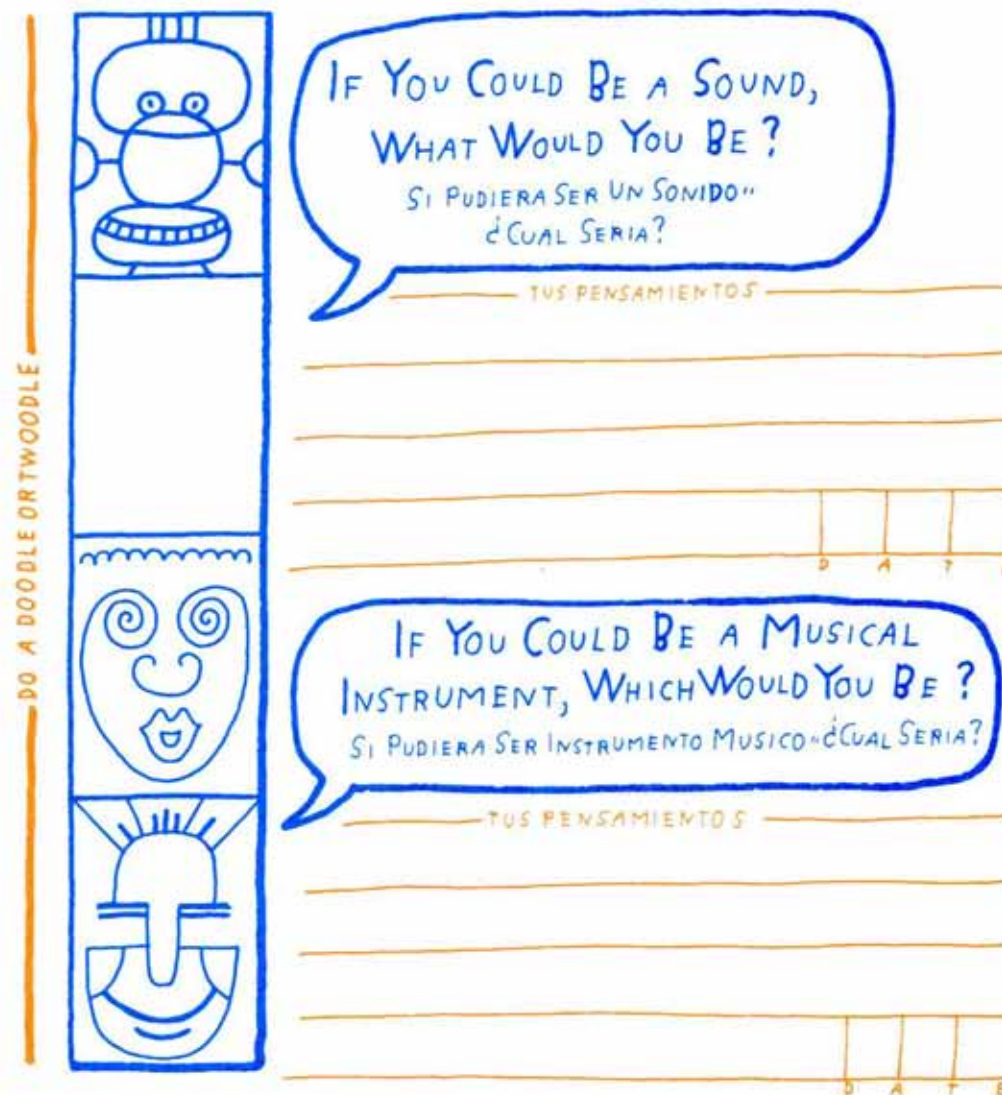 DO A DOODLE OR TWOODLE
IF YOU COULD BE A SOUND,
WHAT WOULD YOU BE?
SI PUDIERA SER UN SONIDO"
¿CUAL SERIA?
TUS PENSAMIENTOS
D A T
IF YOU COULD BE A MUSICAL
INSTRUMENT, WHICH WOULD YOU BE?
SI PUDIERA SER INSTRUMENTO MUSICO"¿CUAL SERIA?
TUS PENSAMIENTOS
D A T E